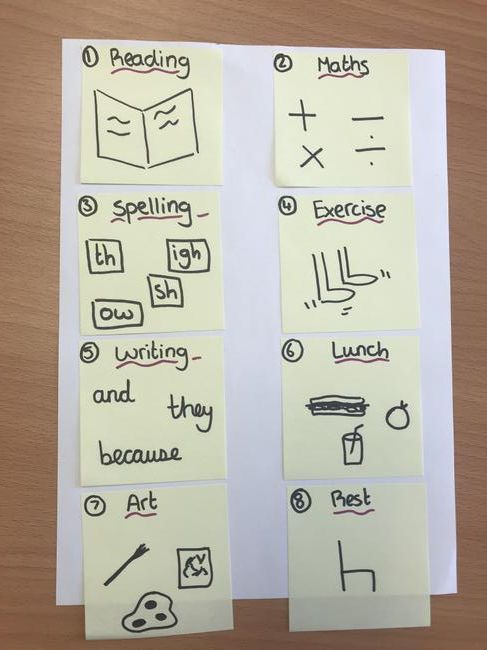 ① Reading
② Maths
+ −
× ÷
③ Spelling
th igh
sh
ow
④ Exercise
⑤ Writing
and
they
because
⑥ Lunch
⑦ Art
⑧ Rest